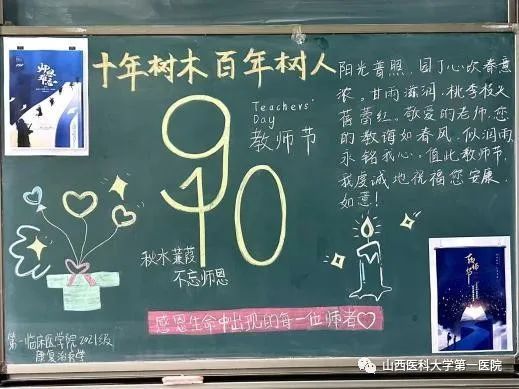 十年树木 百年树人
9
10
Teachers'
Day
教师节
秋水蒹葭
不忘师恩
阳光普照，园丁心坎春意
浓。甘雨滋润，桃李枝头
蓓蕾红。敬爱的老师，您
的教诲如春风，似润雨，
永铭我心。值此教师节，
我虔诚地祝福您安康，
如意！
感恩生命中出现的每一位师者
第一临床医学院2021级
康复治疗学
山西医科大学第一医院